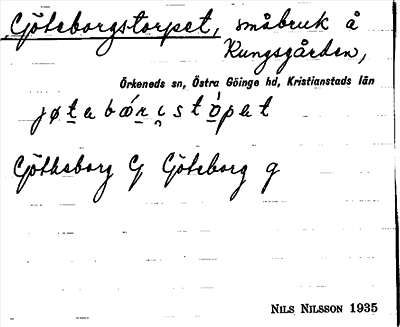 Göteborgstorpet, småbruk å
Kungsgården,
Örkeneds sn, Östra Göinge hd, Kristianstads län
jøtebórıstòpet
Götheborg G Göteborg g
NILS NILSSON 1935